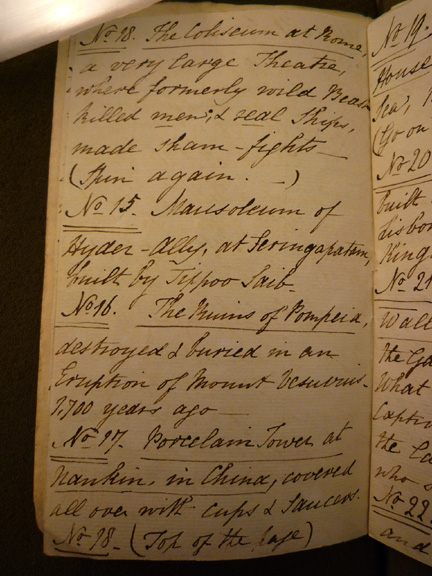 No 18. The Coliseum at Rome,
a very large Theatre,
where formerly wild Beasts
killed men; & real Ships,
made sham-fights
(Spin again. —)
No 15. Mausoleum of
Hyder-Ally, at Seringapatam,
built by Tippoo Saib-
No 16. The Ruins of Pompeia,
destroyed & buried in an
Eruption of Mount Vesuvius-
1,700 years ago —
No 17. Porcelain Tower at
Nankin, in China, covered
all over with cups & saucers.
No 18. (Top of the page)
No 19.
House
Sea,
(Go on
No 20
built
Lisbon
King
No 21
Wall
the Ga
What
Captiv
the Ca
who s
No 22.
and